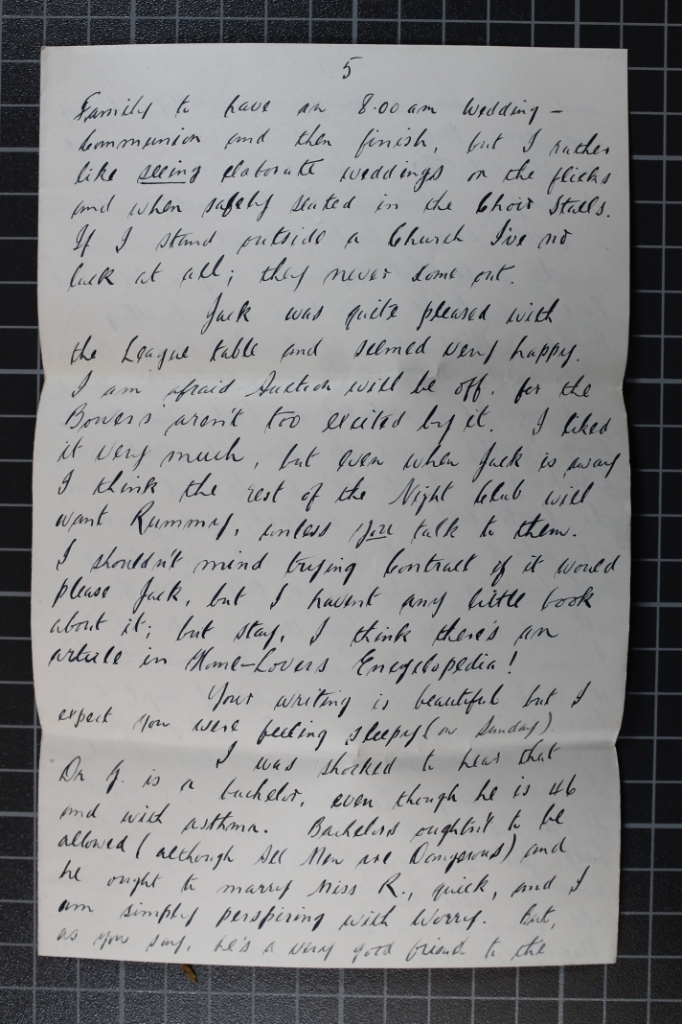 5
Family to have an 8.00 am Wedding –
Communion and then finish, but I rather
like seeing elaborate weddings on the flicks
and when safely seated in the Choir Stalls.
If I stand outside a Church I've no
luck at all; they never come out.
Jack was quite pleased with
the League table and seemed very happy.
I am afraid Auction will be off, for the
Bowers aren't too excited by it. I liked
it very much, but even when Jack is away
I think the rest of the Night Club will
want Rummy, unless you talk to them.
I shouldn't mind trying Contract if it would
please Jack, but I havent any little book
about it; but stay, I think there's an
article in Home-Lovers Encyclopedia!
Your writing is beautiful but I
expect you were feeling sleepy (on Sunday).
I was shocked to hear that
Dr G. is a bachelor, even though he is 46
and with asthma. Bachelors oughtn't to be
allowed (although All Men are Dangerous) and
he ought to marry Miss R., quick, and I
am simply perspiring with Worry. But,
as you say, he's a very good friend to the